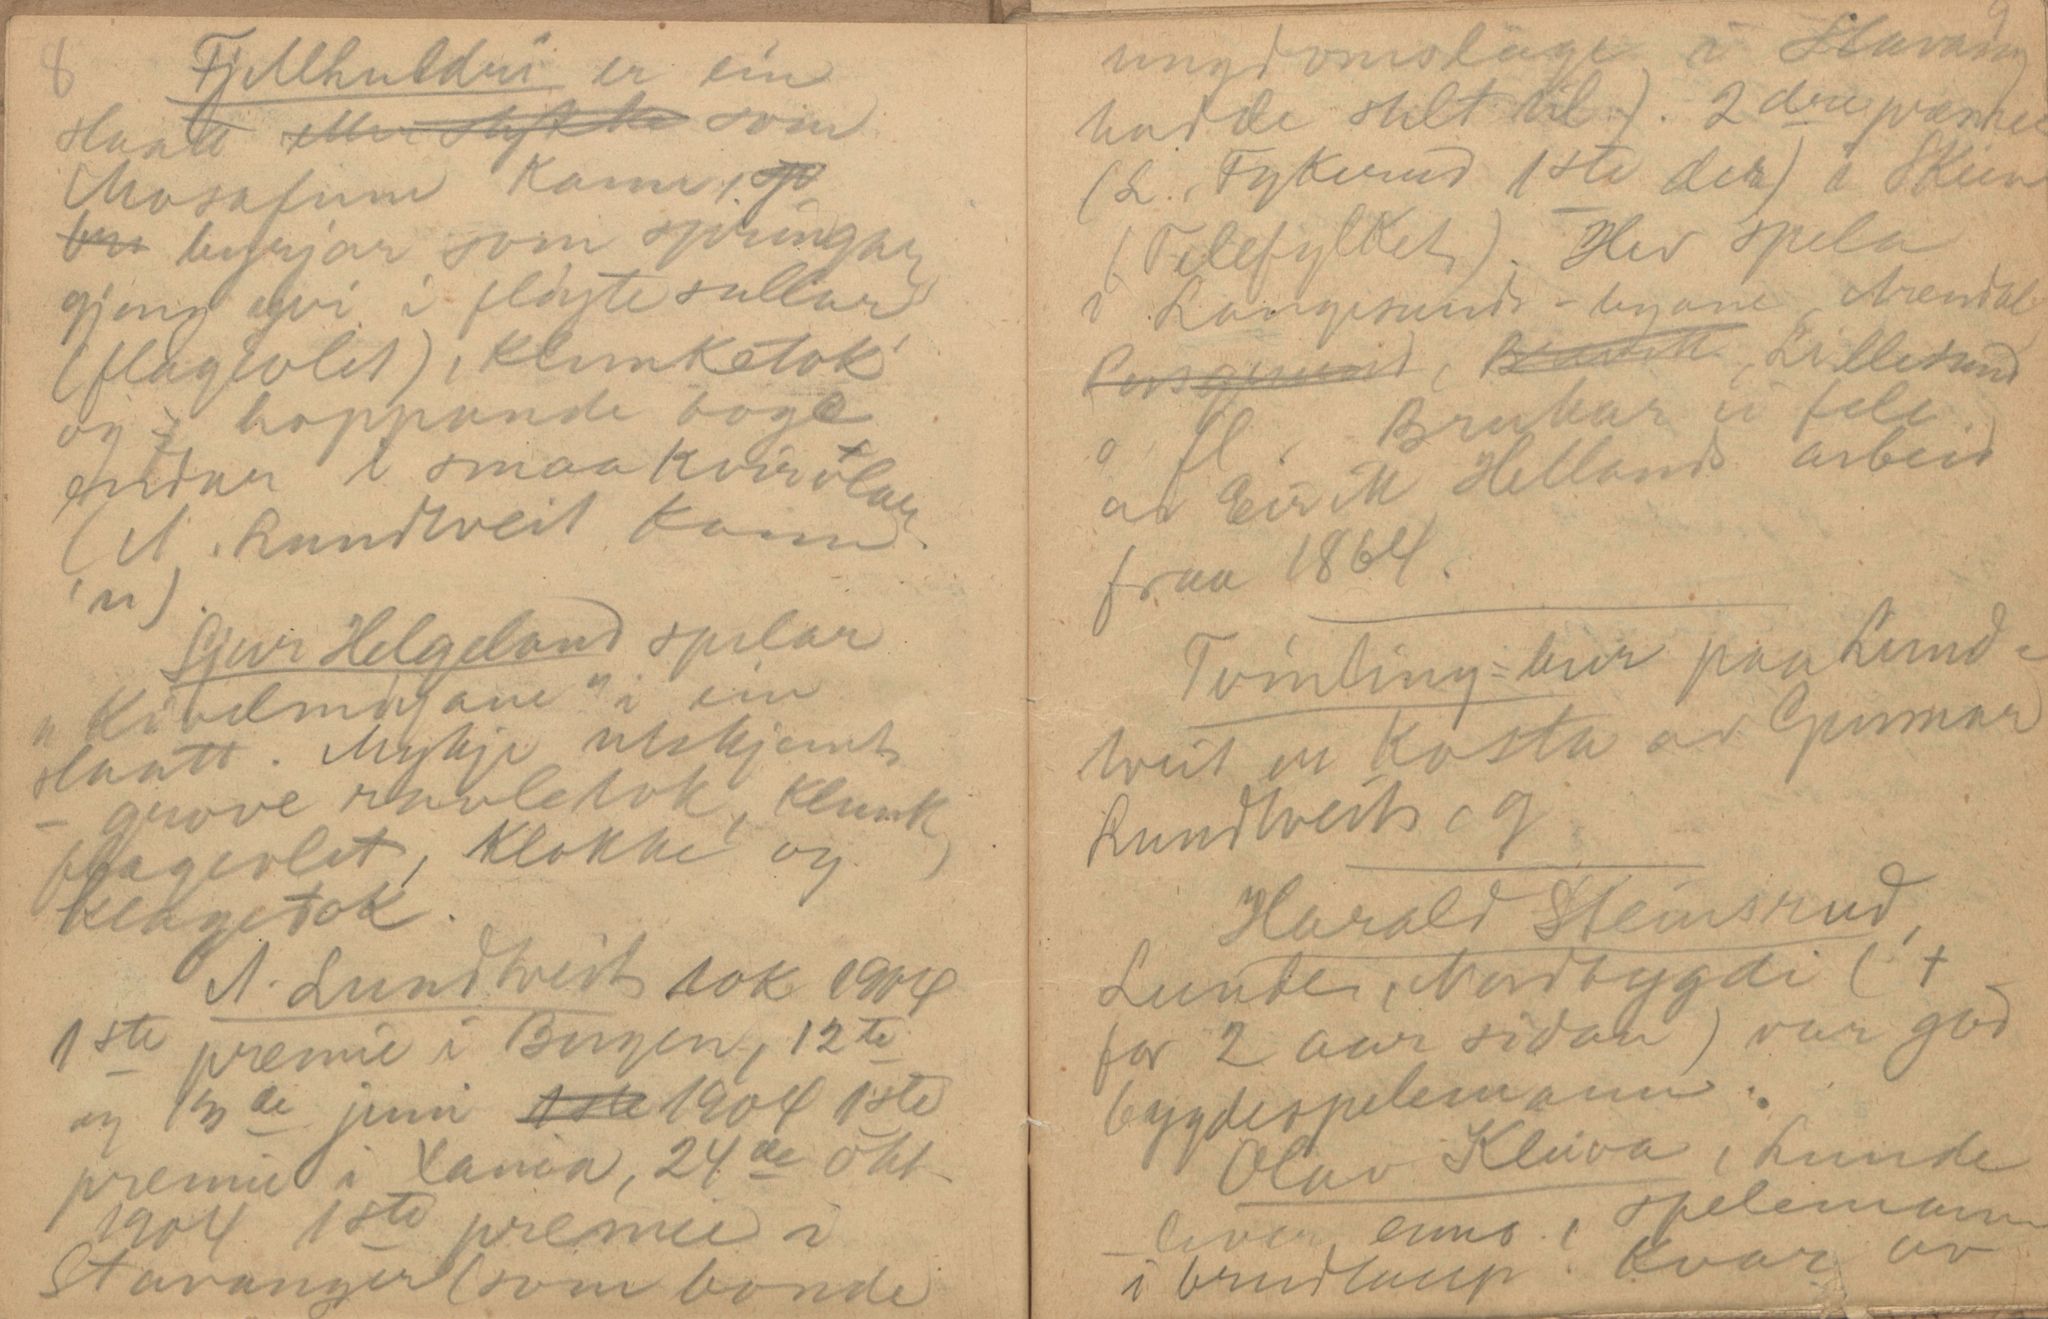 8
Fjellhuldri er ein
slaatt eller stykke som
Mosafinn kann,
byrjar som springar,
gjeng yvi i fløyte sullar
(flageolet), klunketok
og i hoppande boge
endar i smaa kvirvlar
(N. Lundtveit kann
'n).
Sjur Helgeland spelar
"Kivlemøyane" i ein
slaatt. Mykje utskjemt
- grove ravletok, klunk,
flageolet, klokke og
klagetok.
N. Lundtveit tok 1904
1ste premie i Bergen, 12te
og 13de juni 1ste 1904 1ste
premie i Xania, 24de okt
1904 1ste premie i
Stavanger (som bonde
9
ungdomslaget i Stavang
hadde stilt til). 2dre premie
(L. Fykerud 1ste der) i Skien
(Telefylket). Hev spela
i Langesunds-byane, Arendal,
Porsgrund, Brevik, Lillesand
o. fl. Brukar ei fele
av Eir M Hellands arbeid
fraa 1864.
Tvinling-bur paa Lund-
tveit er kosta av Gunnar
Lundtveit,
Harald Steinsrud,
Lunde, Nordbygdi (+
for 2 aar sidan) var god
bygdespelemann.
Olav Kleiva, Lunde
lever enno, spelemann
i brudlaup. Kvar av